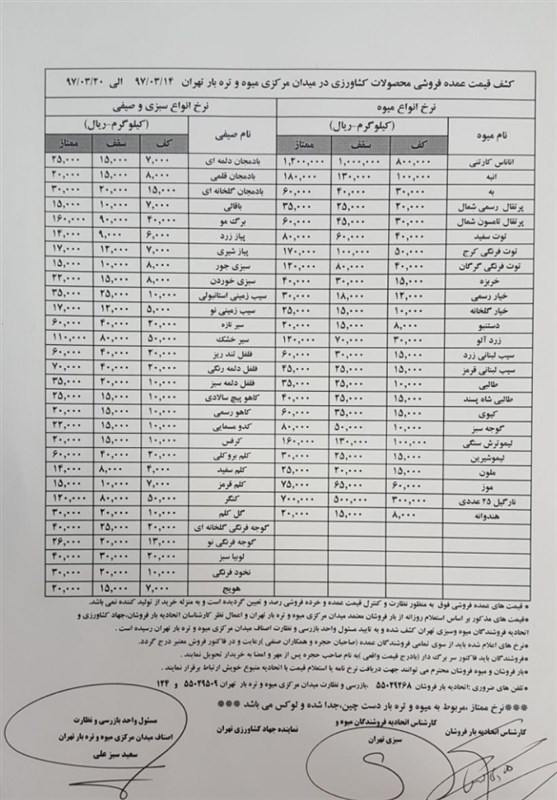 کشف قیمت عمده فروشی محصولات کشاورزی در میدان مرکزی میوه و تره بار تهران ۹۷/۰۳/۱۴ الی ۹۷/۰۳/۲۰
نرخ انواع میوه نرخ انواع سبزی و صیفی
نام میوه (کیلوگرم-ریال) نام صیفی (کیلوگرم-ریال)
کف سقف ممتاز کف سقف ممتاز
آناناس کارتنی ۸۰۰,۰۰۰ ۱,۰۰۰,۰۰۰ ۱,۲۰۰,۰۰۰ بادمجان دلمه ای ۷,۰۰۰ ۱۵,۰۰۰ ۲۵,۰۰۰
انبه ۱۰۰,۰۰۰ ۱۳۰,۰۰۰ ۱۸۰,۰۰۰ بادمجان قلمی ۸,۰۰۰ ۱۵,۰۰۰ ۲۰,۰۰۰
به ۳۰,۰۰۰ ۴۰,۰۰۰ ۶۰,۰۰۰ بادمجان گلخانه ای ۱۵,۰۰۰ ۲۰,۰۰۰ ۳۰,۰۰۰
پرتقال رسمی شمال ۲۰,۰۰۰ ۲۵,۰۰۰ ۳۵,۰۰۰ باقالی ۷,۰۰۰ ۱۰,۰۰۰ ۱۵,۰۰۰
پرتقال تامسون شمال ۳۰,۰۰۰ ۴۵,۰۰۰ ۶۰,۰۰۰ برگ مو ۴۰,۰۰۰ ۹۰,۰۰۰ ۱۶۰,۰۰۰
توت سفید ۴۰,۰۰۰ ۶۰,۰۰۰ ۸۰,۰۰۰ پیاز زرد ۶,۰۰۰ ۹,۰۰۰ ۱۴,۰۰۰
توت فرنگی کرج ۵۰,۰۰۰ ۱۰۰,۰۰۰ ۱۷۰,۰۰۰ پیاز شیری ۷,۰۰۰ ۱۲,۰۰۰ ۱۷,۰۰۰
توت فرنگی گرگان ۴۰,۰۰۰ ۸۰,۰۰۰ ۱۲۰,۰۰۰ سبزی جور ۸,۰۰۰ ۱۰,۰۰۰ ۱۵,۰۰۰
خربزه ۱۵,۰۰۰ ۳۰,۰۰۰ ۴۰,۰۰۰ سبزی خوردن ۸,۰۰۰ ۱۵,۰۰۰ ۲۲,۰۰۰
خیار رسمی ۱۲,۰۰۰ ۱۸,۰۰۰ ۳۰,۰۰۰ سیب زمینی استانبولی ۱۰,۰۰۰ ۲۵,۰۰۰ ۳۵,۰۰۰
خیار گلخانه ۱۰,۰۰۰ ۱۵,۰۰۰ ۲۵,۰۰۰ سیب زمینی نو ۵,۰۰۰ ۱۲,۰۰۰ ۱۷,۰۰۰
دستنبو ۸,۰۰۰ ۱۵,۰۰۰ ۲۰,۰۰۰ سیر تازه ۲۰,۰۰۰ ۴۰,۰۰۰ ۶۰,۰۰۰
زرد آلو ۳۰,۰۰۰ ۷۰,۰۰۰ ۱۲۰,۰۰۰ سیر خشک ۵۰,۰۰۰ ۸۰,۰۰۰ ۱۱۰,۰۰۰
سیب لبنانی زرد ۱۵,۰۰۰ ۳۰,۰۰۰ ۶۰,۰۰۰ فلفل تند ریز ۲۰,۰۰۰ ۴۰,۰۰۰ ۶۰,۰۰۰
سیب لبنانی قرمز ۱۵,۰۰۰ ۲۵,۰۰۰ ۴۵,۰۰۰ فلفل دلمه رنگی ۲۰,۰۰۰ ۴۰,۰۰۰ ۷۰,۰۰۰
طالبی ۱۰,۰۰۰ ۲۵,۰۰۰ ۳۵,۰۰۰ فلفل دلمه سبز ۱۰,۰۰۰ ۲۰,۰۰۰ ۳۵,۰۰۰
طالبی شاه پسند ۱۵,۰۰۰ ۲۵,۰۰۰ ۴۰,۰۰۰ کاهو پیچ سالادی ۱۰,۰۰۰ ۱۵,۰۰۰ ۲۵,۰۰۰
کیوی ۱۵,۰۰۰ ۳۵,۰۰۰ ۶۰,۰۰۰ کاهو رسمی ۱۰,۰۰۰ ۱۵,۰۰۰ ۲۰,۰۰۰
گوجه سبز ۱۰,۰۰۰ ۵۰,۰۰۰ ۸۰,۰۰۰ کدو مسمایی ۱۰,۰۰۰ ۱۵,۰۰۰ ۲۲,۰۰۰
لیموترش سنگی ۱۰۰,۰۰۰ ۱۳۰,۰۰۰ ۱۶۰,۰۰۰ کرفس ۱۰,۰۰۰ ۱۵,۰۰۰ ۲۰,۰۰۰
لیموشیرین ۱۵,۰۰۰ ۲۵,۰۰۰ ۳۰,۰۰۰ کلم بروکلی ۲۰,۰۰۰ ۴۰,۰۰۰ ۶۰,۰۰۰
ملون ۱۵,۰۰۰ ۲۰,۰۰۰ ۲۵,۰۰۰ کلم سفید ۴,۰۰۰ ۸,۰۰۰ ۱۴,۰۰۰
موز ۶۰,۰۰۰ ۶۵,۰۰۰ ۷۵,۰۰۰ کلم قرمز ۷,۰۰۰ ۱۰,۰۰۰ ۱۵,۰۰۰
نارگیل ۲۵ عددی ۳۰۰,۰۰۰ ۵۰۰,۰۰۰ ۷۰۰,۰۰۰ کنگر ۵۰,۰۰۰ ۸۰,۰۰۰ ۱۲۰,۰۰۰
هندوانه ۸,۰۰۰ ۱۵,۰۰۰ ۲۰,۰۰۰ گل کلم ۱۰,۰۰۰ ۲۰,۰۰۰ ۳۰,۰۰۰
گوجه فرنگی گلخانه ای ۲۰,۰۰۰ ۲۵,۰۰۰ ۴۰,۰۰۰
گوجه فرنگی نو ۱۳,۰۰۰ ۲۰,۰۰۰ ۲۶,۰۰۰
لوبیا سبز ۲۰,۰۰۰ ۳۰,۰۰۰ ۴۰,۰۰۰
نخود فرنگی ۱۰,۰۰۰ ۲۰,۰۰۰ ۳۰,۰۰۰
هویج ۷,۰۰۰ ۱۵,۰۰۰ ۲۰,۰۰۰
* قیمت های عمده فروشی فوق به منظور نظارت و کنترل قیمت عمده و خرده فروشی رصد و تعیین گردیده است و به منزله خرید از تولید کننده نمی باشد.
*قیمت های مذکور بر اساس استعلام روزانه از بار فروشان معتمد میدان مرکزی میوه و تره بار تهران و اعمال نظر کارشناسان اتحادیه بار فروشان،جهاد کشاورزی و
اتحادیه فروشندگان میوه وسبزی تهران کشف شده و به تایید مسئول واحد بازرسی و نظارت اصناف میدان مرکزی میوه و تره بار تهران رسیده است .
*نرخ های اعلام شده باید از سوی تمامی فروشندگان عمده (صاحبان حجره و همکاران صنفی )رعایت و در فاکتور فروش معتبر درج گردد.
*فروشندگان باید فاکتور سر برگ دار (بادرج قیمت واقعی )به نام صاحب حجره پس از مهر و امضا به خریدار تحویل نمایند .
*بار فروشان و میوه فروشان محترم می توانند جهت دریافت نرخ نامه یا استعلام قیمت با اتحادیه متبوع خویش ارتباط برقرار نمایند .
*تلفن های ضروری :اتحادیه بار فروشان ۵۵۰۲۹۲۶۸ ،بازرسی و نظارت میدان مرکزی میوه و تره بار تهران ۵۵۰۲۹۵۰۹ و ۱۲۴
***نرخ ممتاز ،مربوط به میوه و تره بار دست چین،جدا شده و لوکس می باشد ***
کارشناس اتحادیه بار فروشان
کارشناس اتحادیه فروشندگان میوه و سبزی تهران
نماینده جهاد کشاورزی تهران
مسئول واحد بازرسی و نظارت
اصناف میدان مرکزی میوه و تره بار تهران
سعید سبز علی